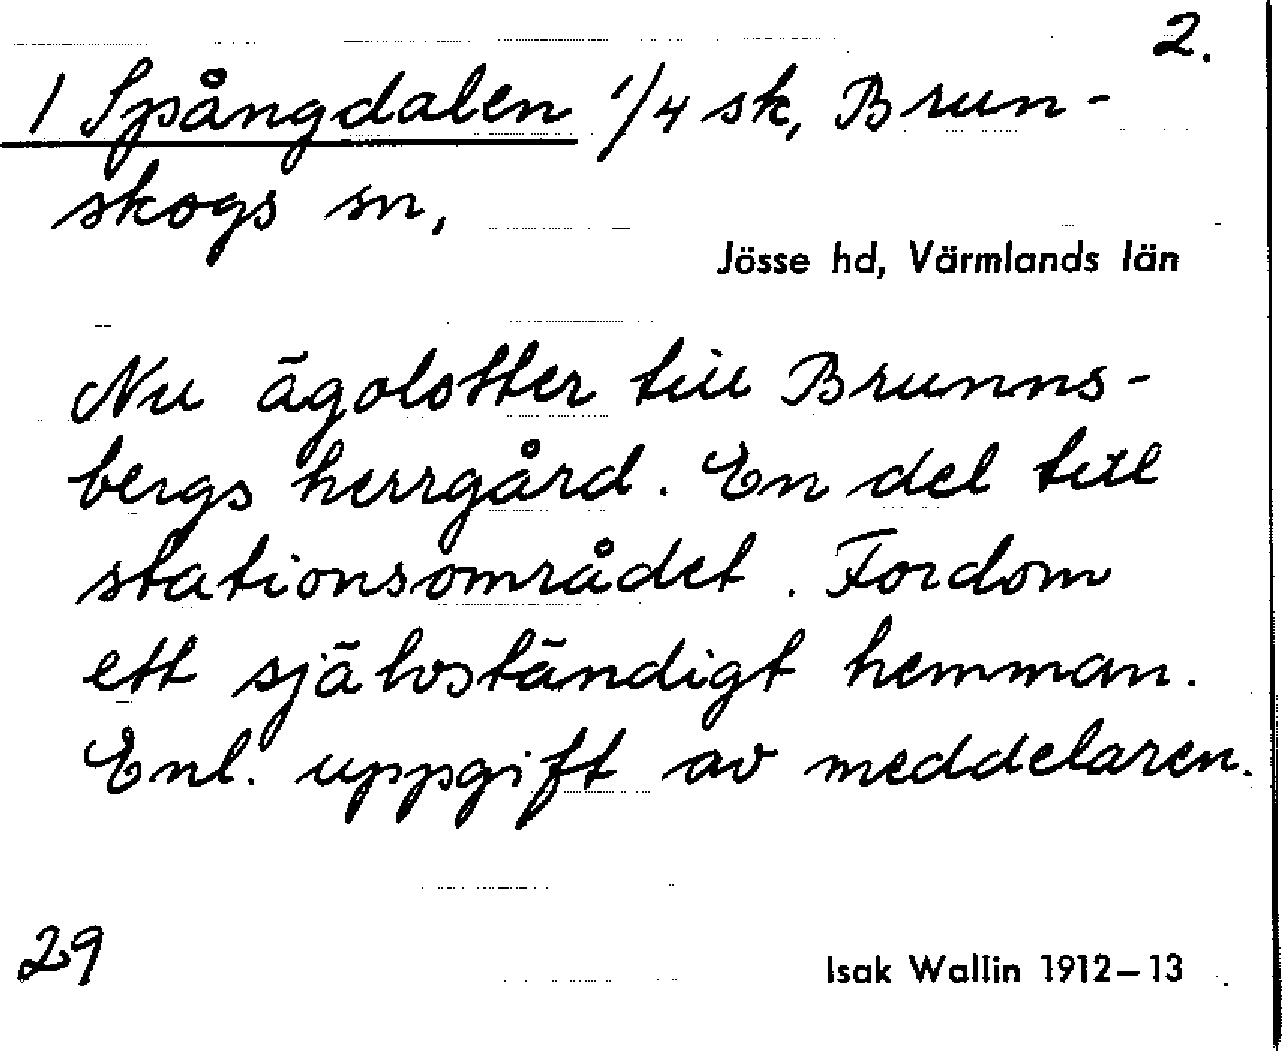 2.
1 Spångdalen 1/4 sk, Brun-
skogs sn,
Jösse hd, Värmlands län
Nu ägolotter till Brunns-
bergs herrgård. En del till
stationsområdet. Fordom
ett självständigt hemman.
Enl. uppgift av meddelaren.
29
Isak Wallin 1912–13